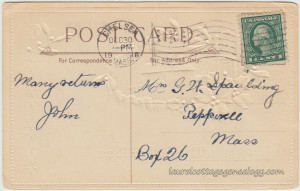 POST CARD
CHELSEA
DEC 30
PM
19
MASS.
For Correspondence
For Address Only.
Many returns
John
Mrs G. W. Spaulding
Pepperell
Mass
Box 26
laurelcottagegenealogy.com